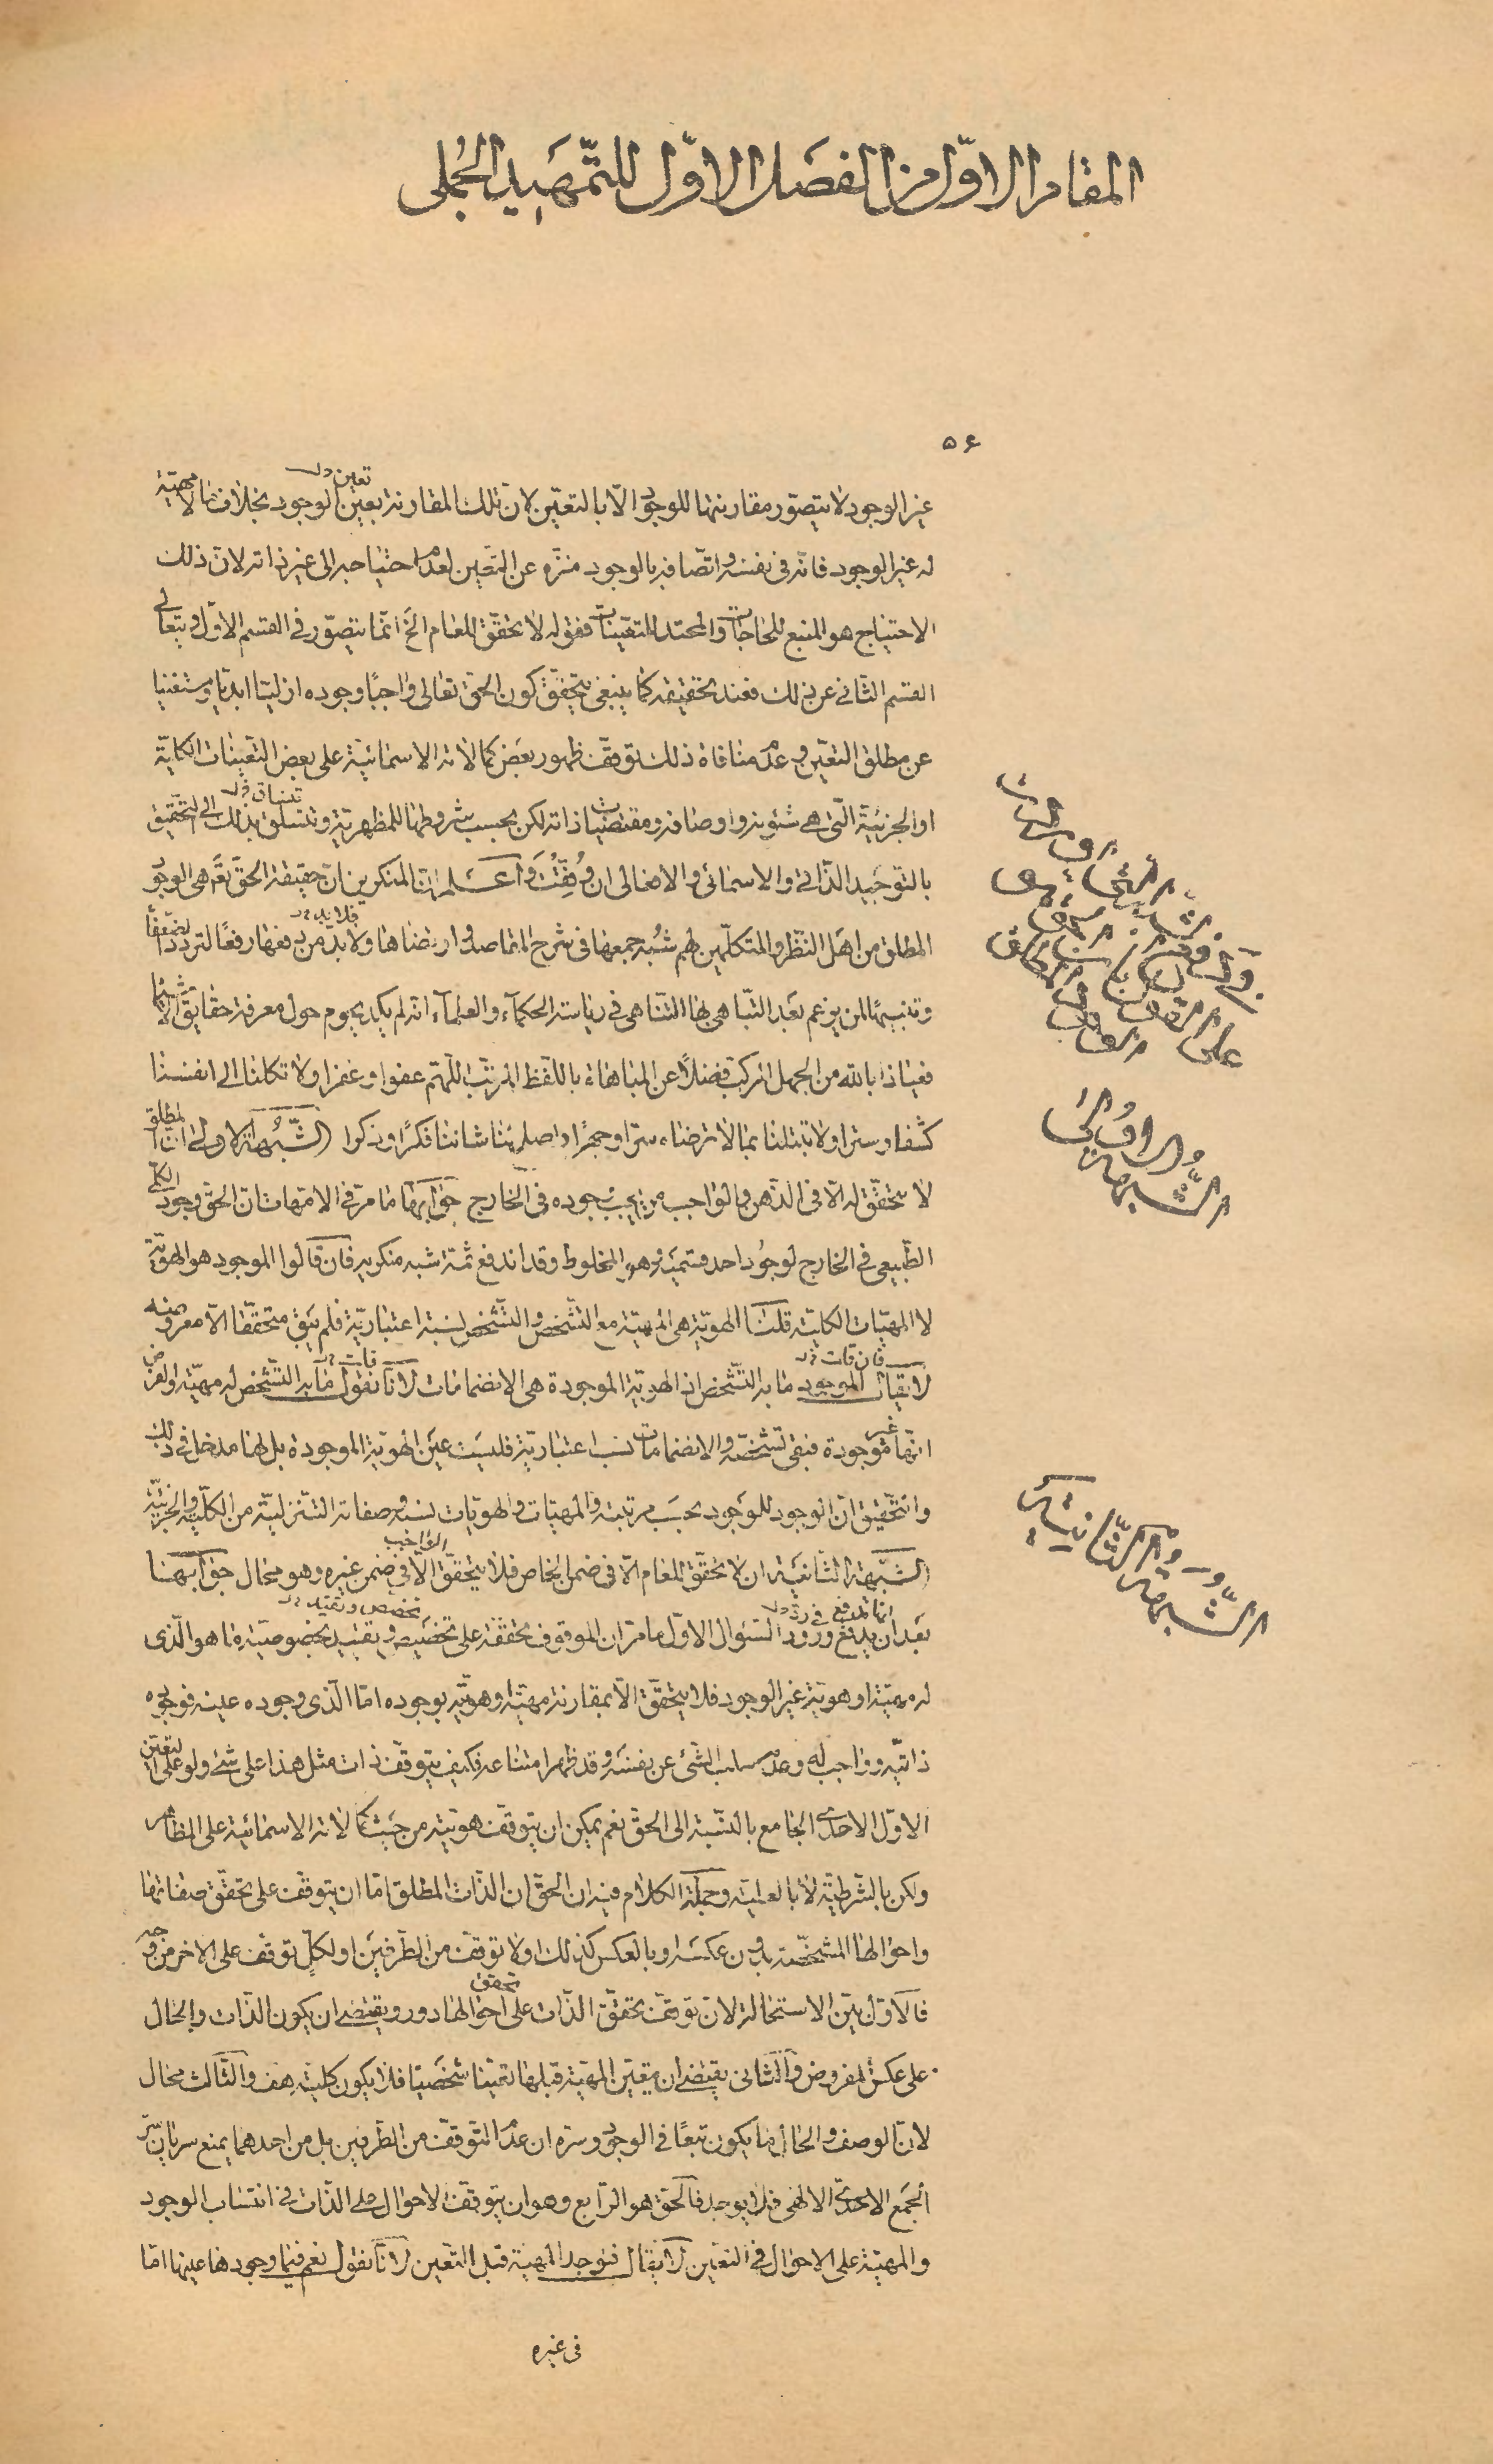 المقام الاوّل من الفصل الاوّل للتّمهيد الجُملى
٥۶
غير الوجود لا يتصوّر مقارنتها للوجود الّا بالتعيّن لانّ تلك المقارنة بعين الوجود بخلاف ما لا مهيّة
تعين
له غير الوجود فانّه فى نفسه واتّصافه بالوجود منزّه عن التعين لعدم احتياجه الى غير ذاته لانّ ذلك
الاحتياج هو المنبع للحاجات والمحتد للتعيّنات فقوله لا تحقّق للعام الخ انّما يتصوّر فى القسم الاوّل وتعالى
القسم الثانى عن ذلك فعند تحقيقه كما ينبغى يتحقّق كون الحقّ تعالى واجبًا وجوده ازليّا ابديّا ومستغنيا
عن مطلق التعيّن وعدم منافاة ذلك توقّف ظهور بعض كمالاته الاسمائيّة على بعض التعيّنات الكليّة
او الجزئيّة الّتى هى شئونه واوصافه ومقتضيات ذاته لكن بحسب شروطها المظهريّة وتتسلّق بذلك الى التّحقيق
تنساق
بالتوحيد الذّاتى والاسمائى والافعالى ان وُفِّقْتَ واعلم انّ المنكرين انّ حقيقة الحقّ تع هى الوجود
المطلق من اهل النّظر والمتكلّمين لهم شُبه جمعها فى شرح المقاصد وارتضاها ولا بدّ من دفعها رفعًا لتردد الضعفاء
فلا بد
وتنبيهًا لمن يزعم بعد التّباهى بهذا التّناهى فى رياسة الحكمآء والعلمآء انه لم يكد يحوم حول معرفة حقايق الاشيا
فعياذا بالله من الجهل المركب فضلًا عن المباهاة باللّفظ المرتّب اللّهم عفوا وغفرا ولا تكلنا الى انفسنا
كشفا وسترا ولا تبتلنا بما لا ترضاه سترا وجهرًا واصلح لنا شاننا فكرًا وذكرا الشّبهة الاولى انّ المطلق
لا تحقّق له الّا فى الذّهن والواجب من يجب وجوده فى الخارج جوابها ما مرّ فى الامهات انّ الحقّ وجود الكلّى
الطّبيعى فى الخارج لوجُود احد قسميه وهو المخلوط وقد اندفع ثمّة شبه منكريه فان قالوا الموجود هو الهويّة
لا المهيّات الكليّة قلنا الهويّة هى المهيّة مع التّشخص والتّشخص نسبة اعتباريّة فلم يبق متحقّقا الّا معروضه
لا يقال الموجود ما به التّشخص اذ الهويّة الموجودة هى الانضمامات لانّا نقول ما به التّشخص له مهيّة والفرض
فان قلت
قلت
انّها غير موجودة فبقى تشخّصه والانضمامات نسب اعتباريّة فليست عين الهويّة الموجودة بل لها مدخل فى ذلك
والتّحقيق انّ الوجود للوجود بحسب مرتبته والمهيّات والهويّات نسب وصفاته التنزليّة من الكلّيّة والجزئيّة
الشّبهة الثّانية ان لا تحقّق للعام الّا فى ضمن الخاص فلا يتحقّق الّا فى ضمن غيره وهو محال جوابها
الواجب
بعد ان يدفع ورود السّئوال الاوّل ما مرّ ان الموقوف تحقّقه على تخصّصه وتقيّد بخصوصيّة ما هو الّذى
انما تدفع فى ردّ
تخصّص وتقيّد
له مهيّة او هويّة غير الوجود فلا يتحقّق الّا بمقارنة مهيّته وهويّته بوجوده امّا الّذى وجوده عينه فوجوده
ذاتيّه وواجب له وعدم سلب الشّئ عن نفسه وقد ظهر امتناعه فكيف يتوقّف ذات مثل هذا على شئ ولو على التعيّن
الاوّل الاحدى الجامع بالنّسبة الى الحقّ نعم يمكن ان يتوقّف هويّته من حيث كمالاته الاسمائيّة على المظاهر
ولكن بالشّرطيّة لا بالعليّة وجملة الكلام فيه ان الحقّ ان الذّات المطلق امّا ان يتوقّف على تحقّق صفاتها
واحوالها المشخّصة بدون عكسه او بالعكس كذلك او لا توقّف من الطّرفين او لكلّ توقّف على الاخر من وجه
فالاوّل بيّن الاستحالة لانّ توقّف تحقّق الذّات على احوالها دور ويقتضى ان يكون الذّات والحال
تحقق
على عكس المفروض والثّانى يقتضى ان يتعيّن المهيّة قبلها تعيّنا شخصيّا فلا يكون كليّة هف والثّالث محال
لانّ الوصف والحال ما يكون تبعًا فى الوجود وسرّه ان عدم التوقّف من الطّرفين بل من احدهما يمنع سريان سرّ
الجمع الاحدىّ الالهى فلا يوجد فالحقّ هو الرّابع وهو ان يتوقّف الاحوال على الذّات فى انتساب الوجود
والمهيّة على الاحوال فى التعيّن لا يقال فيوجد المهيّة قبل التعيّن لانّا نقول نعم فيما وجودها عينها امّا
فى غيره
الشّبهة الاُولى
الشّبهة الثّانية